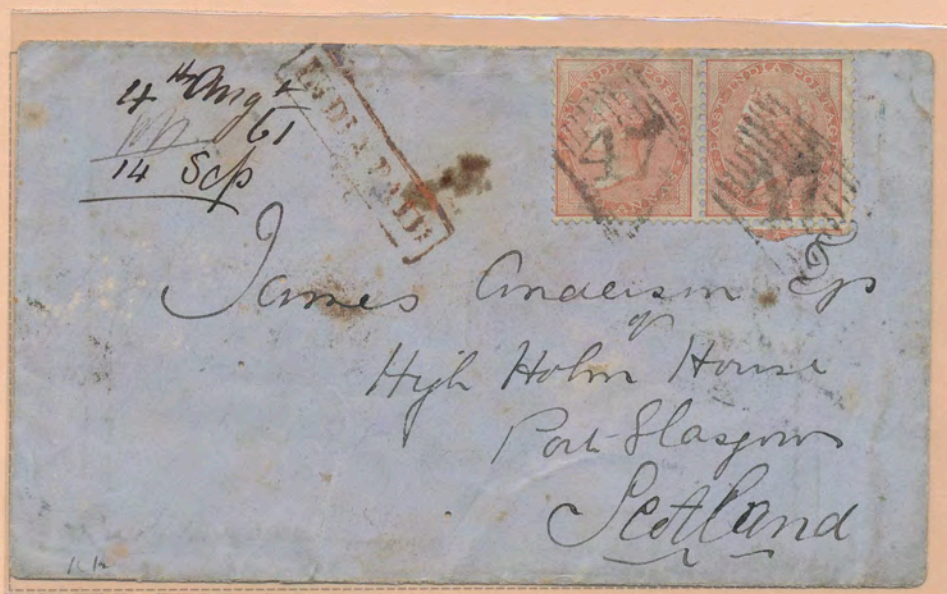 4th Augt
61
14 Sep
INDIA PAID
EAST INDIA POSTAGE
EAST INDIA POSTAGE
47
James Anderson Esqr
of
High Holm House
Port-Glasgow
Scotland